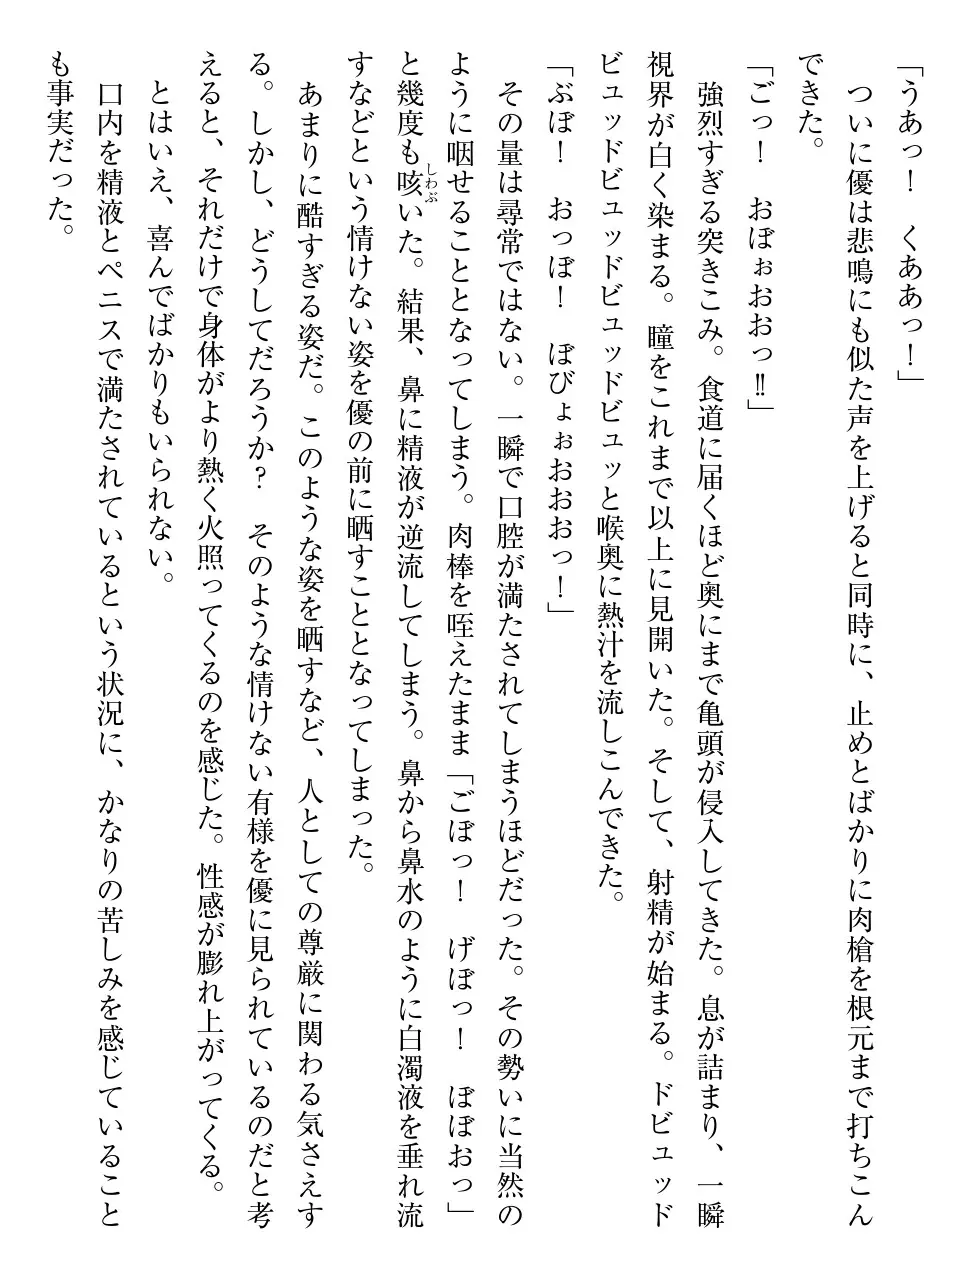 「うあっ！　くああっ！」
　ついに優は悲鳴にも似た声を上げると同時に、止めとばかりに肉槍を根元まで打ちこん
できた。
「ごっ！　おぼぉおおっ‼」
　強烈すぎる突きこみ。食道に届くほど奥にまで亀頭が侵入してきた。息が詰まり、一瞬
視界が白く染まる。瞳をこれまで以上に見開いた。そして、射精が始まる。ドビュッド
ビュッドビュッドビュッドビュッと喉奥に熱汁を流しこんできた。
「ぶぼ！　おっぼ！　ぼびょぉおおおっ！」
　その量は尋常ではない。一瞬で口腔が満たされてしまうほどだった。その勢いに当然の
ように咽せることとなってしまう。肉棒を咥えたまま「ごぼっ！　げぼっ！　ぼぼおっ」
と幾度も咳しわぶいた。結果、鼻に精液が逆流してしまう。鼻から鼻水のように白濁液を垂れ流
すなどという情けない姿を優の前に晒すこととなってしまった。
　あまりに酷すぎる姿だ。このような姿を晒すなど、人としての尊厳に関わる気さえす
る。しかし、どうしてだろうか？　そのような情けない有様を優に見られているのだと考
えると、それだけで身体がより熱く火照ってくるのを感じた。性感が膨れ上がってくる。
　とはいえ、喜んでばかりもいられない。
　口内を精液とペニスで満たされているという状況に、かなりの苦しみを感じていること
も事実だった。